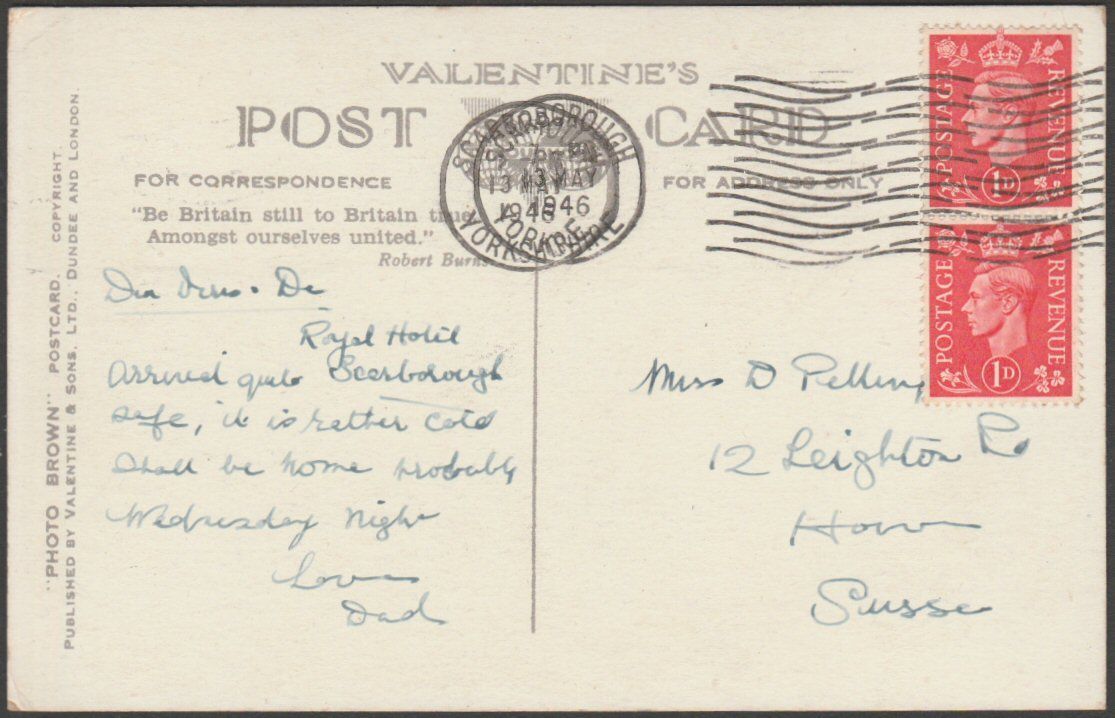 VALENTINE'S
POST CARD
FOR CORRESPONDENCE
FOR ADDRESS ONLY
"Be Britain still to Britain true,
Amongst ourselves united."
Robert Burns
"PHOTO BROWN" POSTCARD. COPYRIGHT.
PUBLISHED BY VALENTINE & SONS, LTD., DUNDEE AND LONDON.
SCARBOROUGH
13 MAY
1946
YORKSHIRE
POSTAGE REVENUE
1D
POSTAGE REVENUE
1D
Royal Hotel
Scarborough
Arrived quite
safe, it is rather cold
Shall be home probably
Wednesday Night
Love
Dad
Miss D
12 Leighton Rd
Hove
Sussex